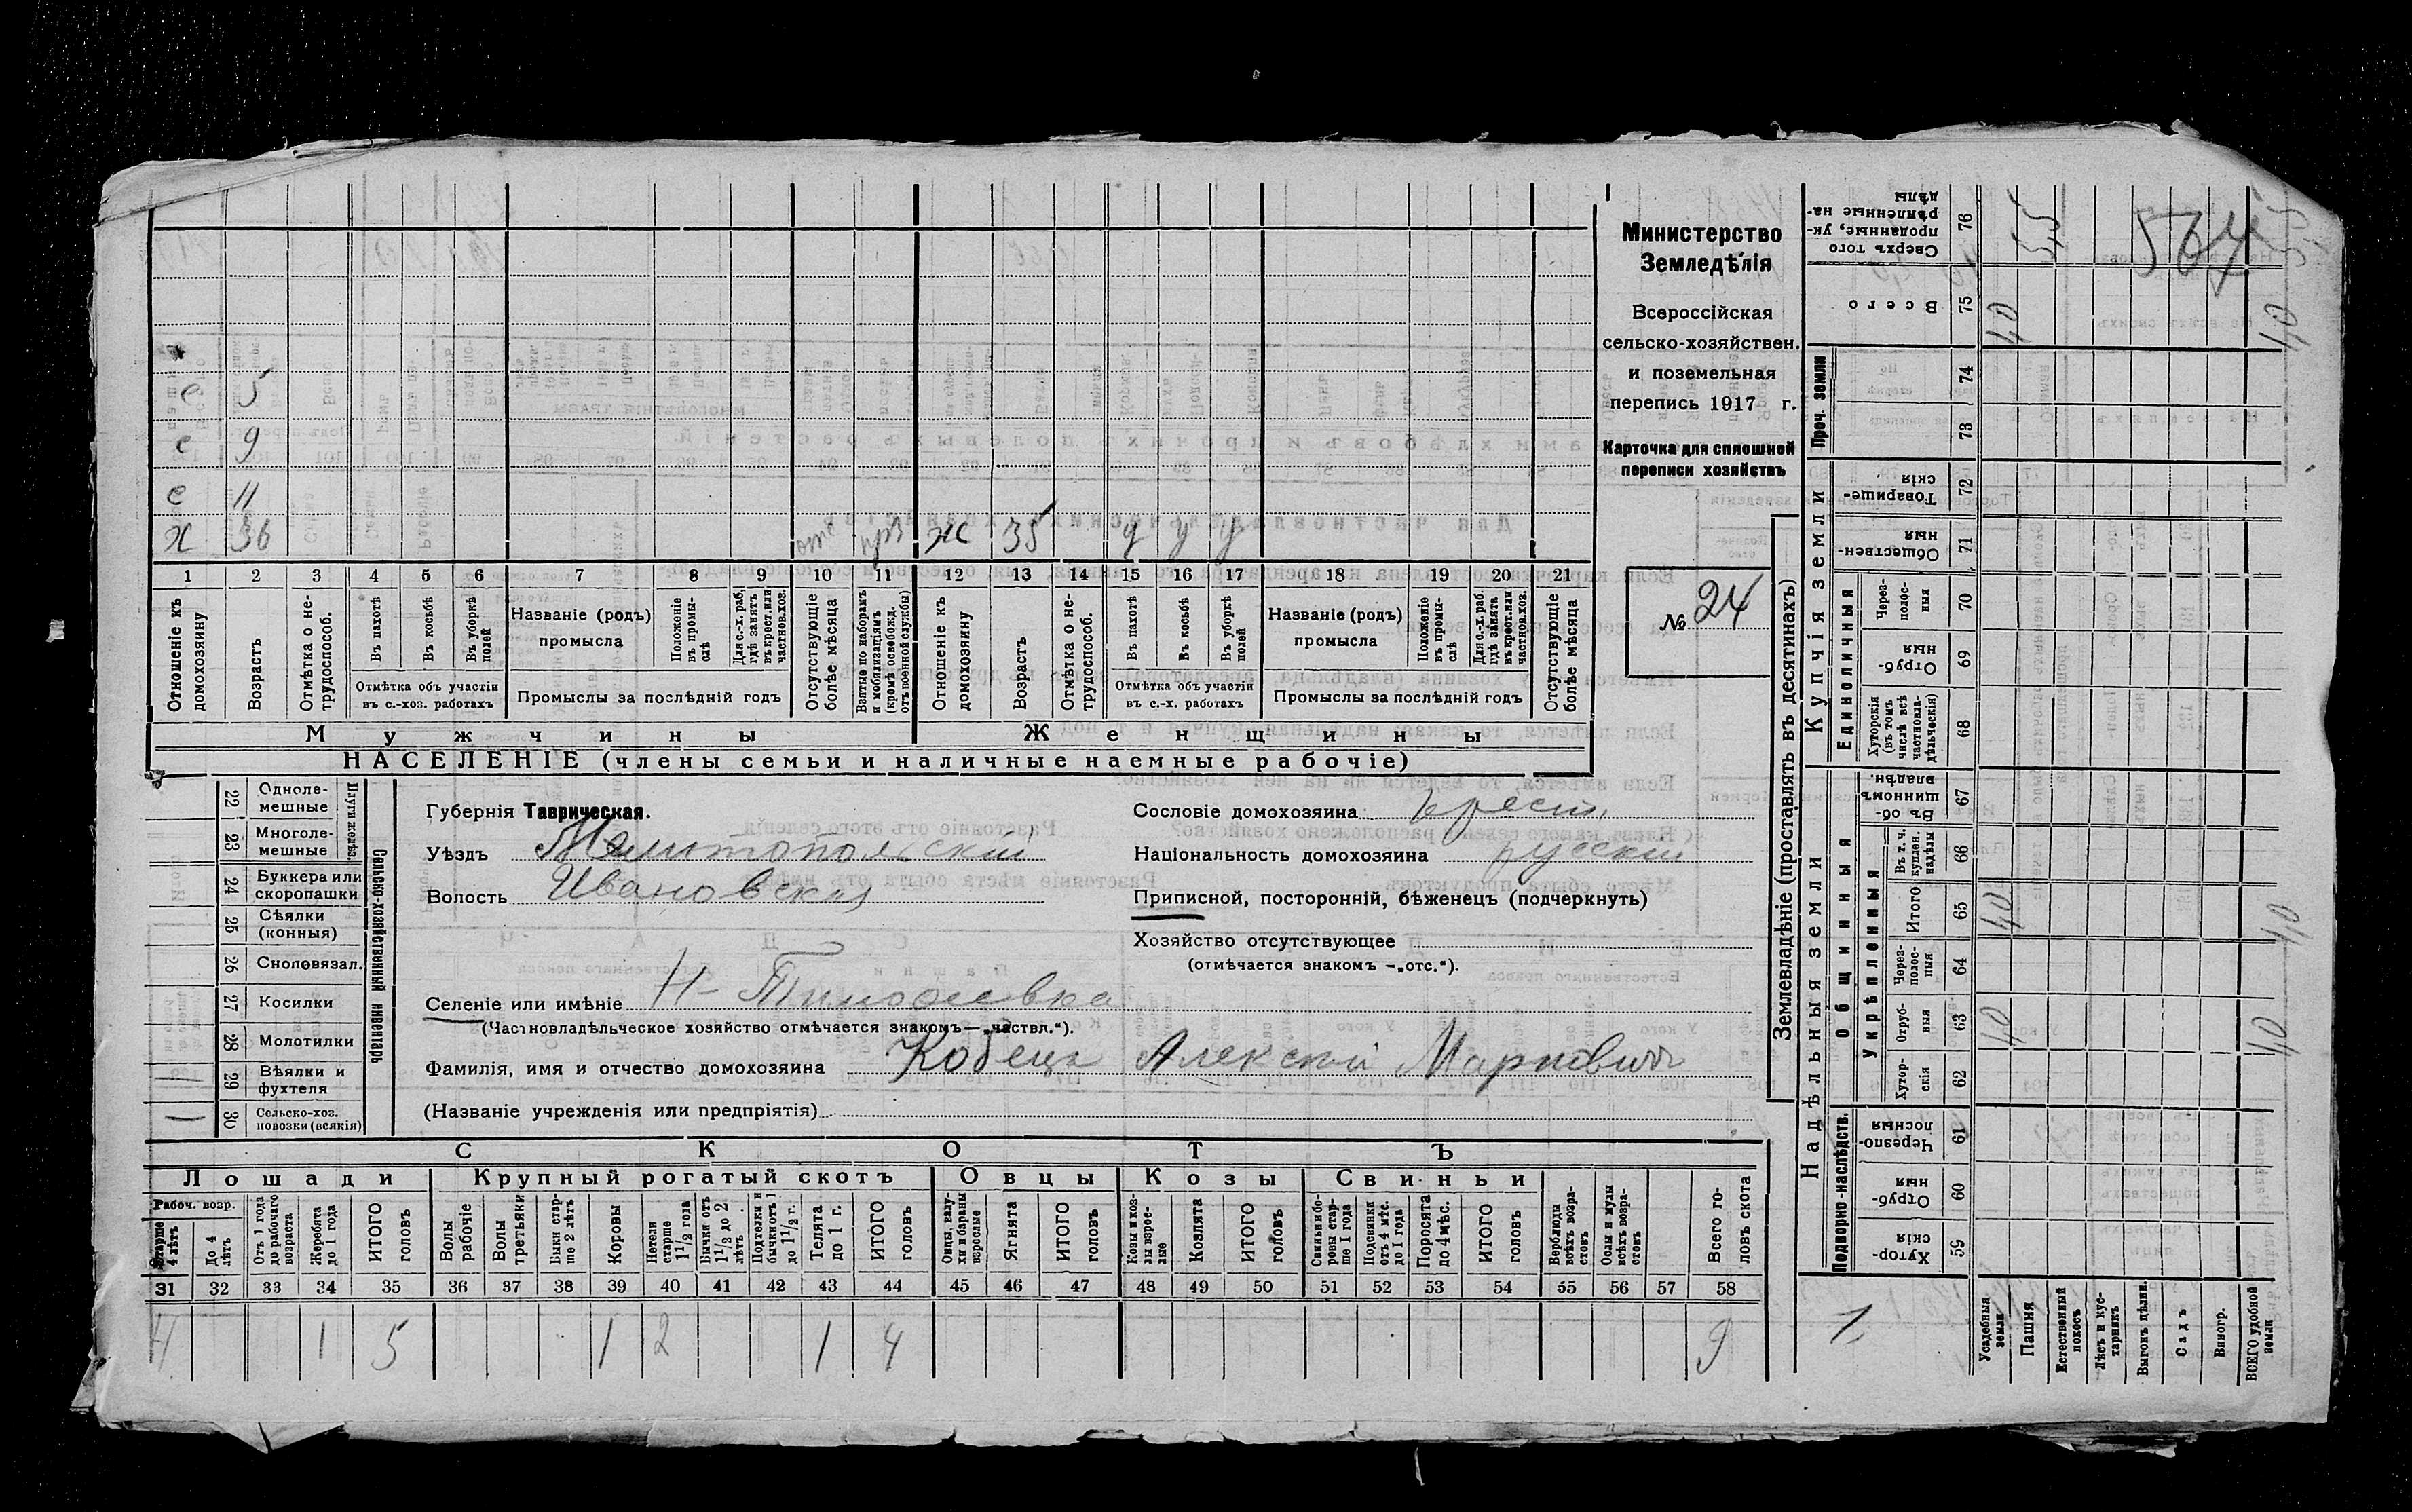 Министерство
Земледѣлія
Всероссійская
сельско-хозяйствен.
и поземельная
перепись 1917 г.
Карточка для сплошной
переписи хозяйствъ
№ 24
с 5
с 9
с 11
х 36 отс ж 35 у у у
1 2 3 4 5 6 7 8 9 10 11 12 13 14 15 16 17 18 19 20 21
Отношеніе къ домохозяину
Возрастъ
Отмѣтка о не-трудоспособ.
Въ пахотѣ
Въ косьбѣ
Въ уборкѣ полей
Отмѣтка объ участіи
въ с.-хоз. работахъ
Названіе (родъ)
промысла
Положеніе въ промы-слѣ
Для с.-х. раб. гдѣ занятъ въ крест. или частнов. хоз.
Промыслы за послѣдній годъ
Отсутствующіе болѣе мѣсяца
Взятые по наборамъ и мобилизаціямъ (кромѣ освобожд. отъ военной службы)
Отношеніе къ домохозяину
Возрастъ
Отмѣтка о не-трудоспособ.
Въ пахотѣ
Въ косьбѣ
Въ уборкѣ полей
Отмѣтка объ участіи
въ с.-х. работахъ
Названіе (родъ)
промысла
Положеніе въ промы-слѣ
Для с.-х. раб. гдѣ занята въ крест. или частнов. хоз.
Промыслы за послѣдній годъ
Отсутствующіе болѣе мѣсяца
Мужчины Женщины
НАСЕЛЕНІЕ (члены семьи и наличные наемные рабочіе)
Сельско-хозяйственный инвентарь
Плуги желѣз.
22 Одноле-мешные
23 Многоле-мешные
24 Буккера или скоропашки
25 Сѣялки (конныя)
26 Сноповязал.
27 Косилки
28 Молотилки
1 29 Вѣялки и фухтеля
1 30 Сельско-хоз. повозки (всякія)
Губернія Таврическая.
Уѣздъ Мелитопольскій
Волость Ивановская
Сословіе домохозяина крест.
Національность домохозяина русскій
Приписной, посторонній, бѣженецъ (подчеркнуть)
Хозяйство отсутствующее
(отмѣчается знакомъ —„отс.“).
Селеніе или имѣніе Н-Тимофеевка
(Частновладѣльческое хозяйство отмѣчается знакомъ—„частвл.“).
Фамилія, имя и отчество домохозяина Кобецъ Алексѣй Марковичъ
(Названіе учрежденія или предпріятія)
СКОТЪ
Лошади Крупный рогатый скотъ Овцы Козы Свиньи
Рабоч. возр.
Старше 4 лѣтъ
До 4 лѣтъ
Отъ 1 года до рабочаго возраста
Жеребята до 1 года
ИТОГО головъ
Волы рабочіе
Волы третьяки
Быки стар-ше 2 лѣтъ
Коровы
Нетели старше 1 1/2 года
Бычки отъ 1 1/2 до 2 лѣтъ
Подтелки и бычки отъ 1 до 1 1/2 г.
Телята до 1 г.
ИТОГО головъ
Овцы, валу-хи и бараны взрослые
Ягнята
ИТОГО головъ
Козы и коз-лы взрос-лые
Козлята
ИТОГО головъ
Свиньи и бо-ровы стар-ше 1 года
Подсвинки отъ 4 мѣс. до 1 года
Поросята до 4 мѣс.
ИТОГО головъ
Верблюды всѣхъ возра-стовъ
Ослы и мулы всѣхъ возра-стовъ
Всего го-ловъ скота
31 32 33 34 35 36 37 38 39 40 41 42 43 44 45 46 47 48 49 50 51 52 53 54 55 56 57 58
4 1 5 1 2 1 4 9
Землевладѣніе (проставлять въ десятинахъ)
Надѣльныя земли
Купчія земли
Проч. земли
Общинныя
Укрѣпленныя
Единоличныя
Подворно-наслѣдств.
Сверхъ того проданные, ук-рѣпленные на-дѣлы 76
Всего 75 40 40
74
73
Товарище-скія 72
Обществен-ныя 71
Через-полос-ныя 70
Отруб-ныя 69
Хуторскія (въ томъ числѣ всѣ частновла-дѣльческія) 68
Въ об-щинномъ владѣн. 67
Въ т. ч. куплен. надѣлы 66
Итого 65 40 40
Через-полос-ныя 64
Отруб-ныя 63 40 40
Хутор-скія 62
Черезпо-лосныя 61
Отруб-ныя 60
Хутор-скія 59
Усадебныя земли
Пашня
Естественный покосъ
Лѣсъ и кус-тарникъ
Выгонъ дѣлим.
Садъ
Виногр.
ВСЕГО удобной земли